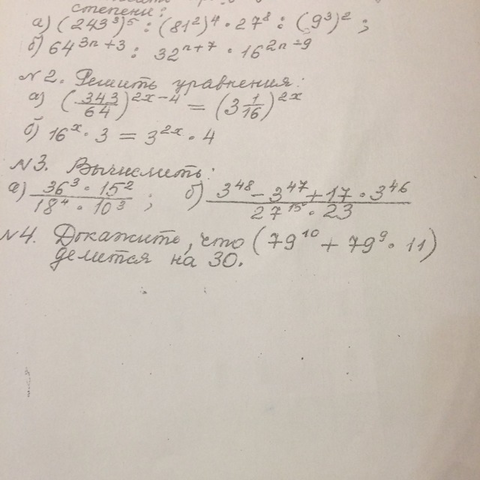 степени:
а) (243³)⁵ : (81²)⁴ · 27⁸ : (9³)² ;
б) 64³ⁿ⁺³ : 32ⁿ⁺⁷ · 16²ⁿ⁻⁹
№2. Решить уравнения:
а) (343/64)²ˣ⁻⁴ = (3 1/16)²ˣ
б) 16ˣ · 3 = 3²ˣ · 4
№3. Вычислить:
а) 36³ · 15² / 18⁴ · 10³ ; б) 3⁴⁸ - 3⁴⁷ + 17 · 3⁴⁶ / 27¹⁵ · 23
№4. Докажите, что (79¹⁰ + 79⁹ · 11)
делится на 30.